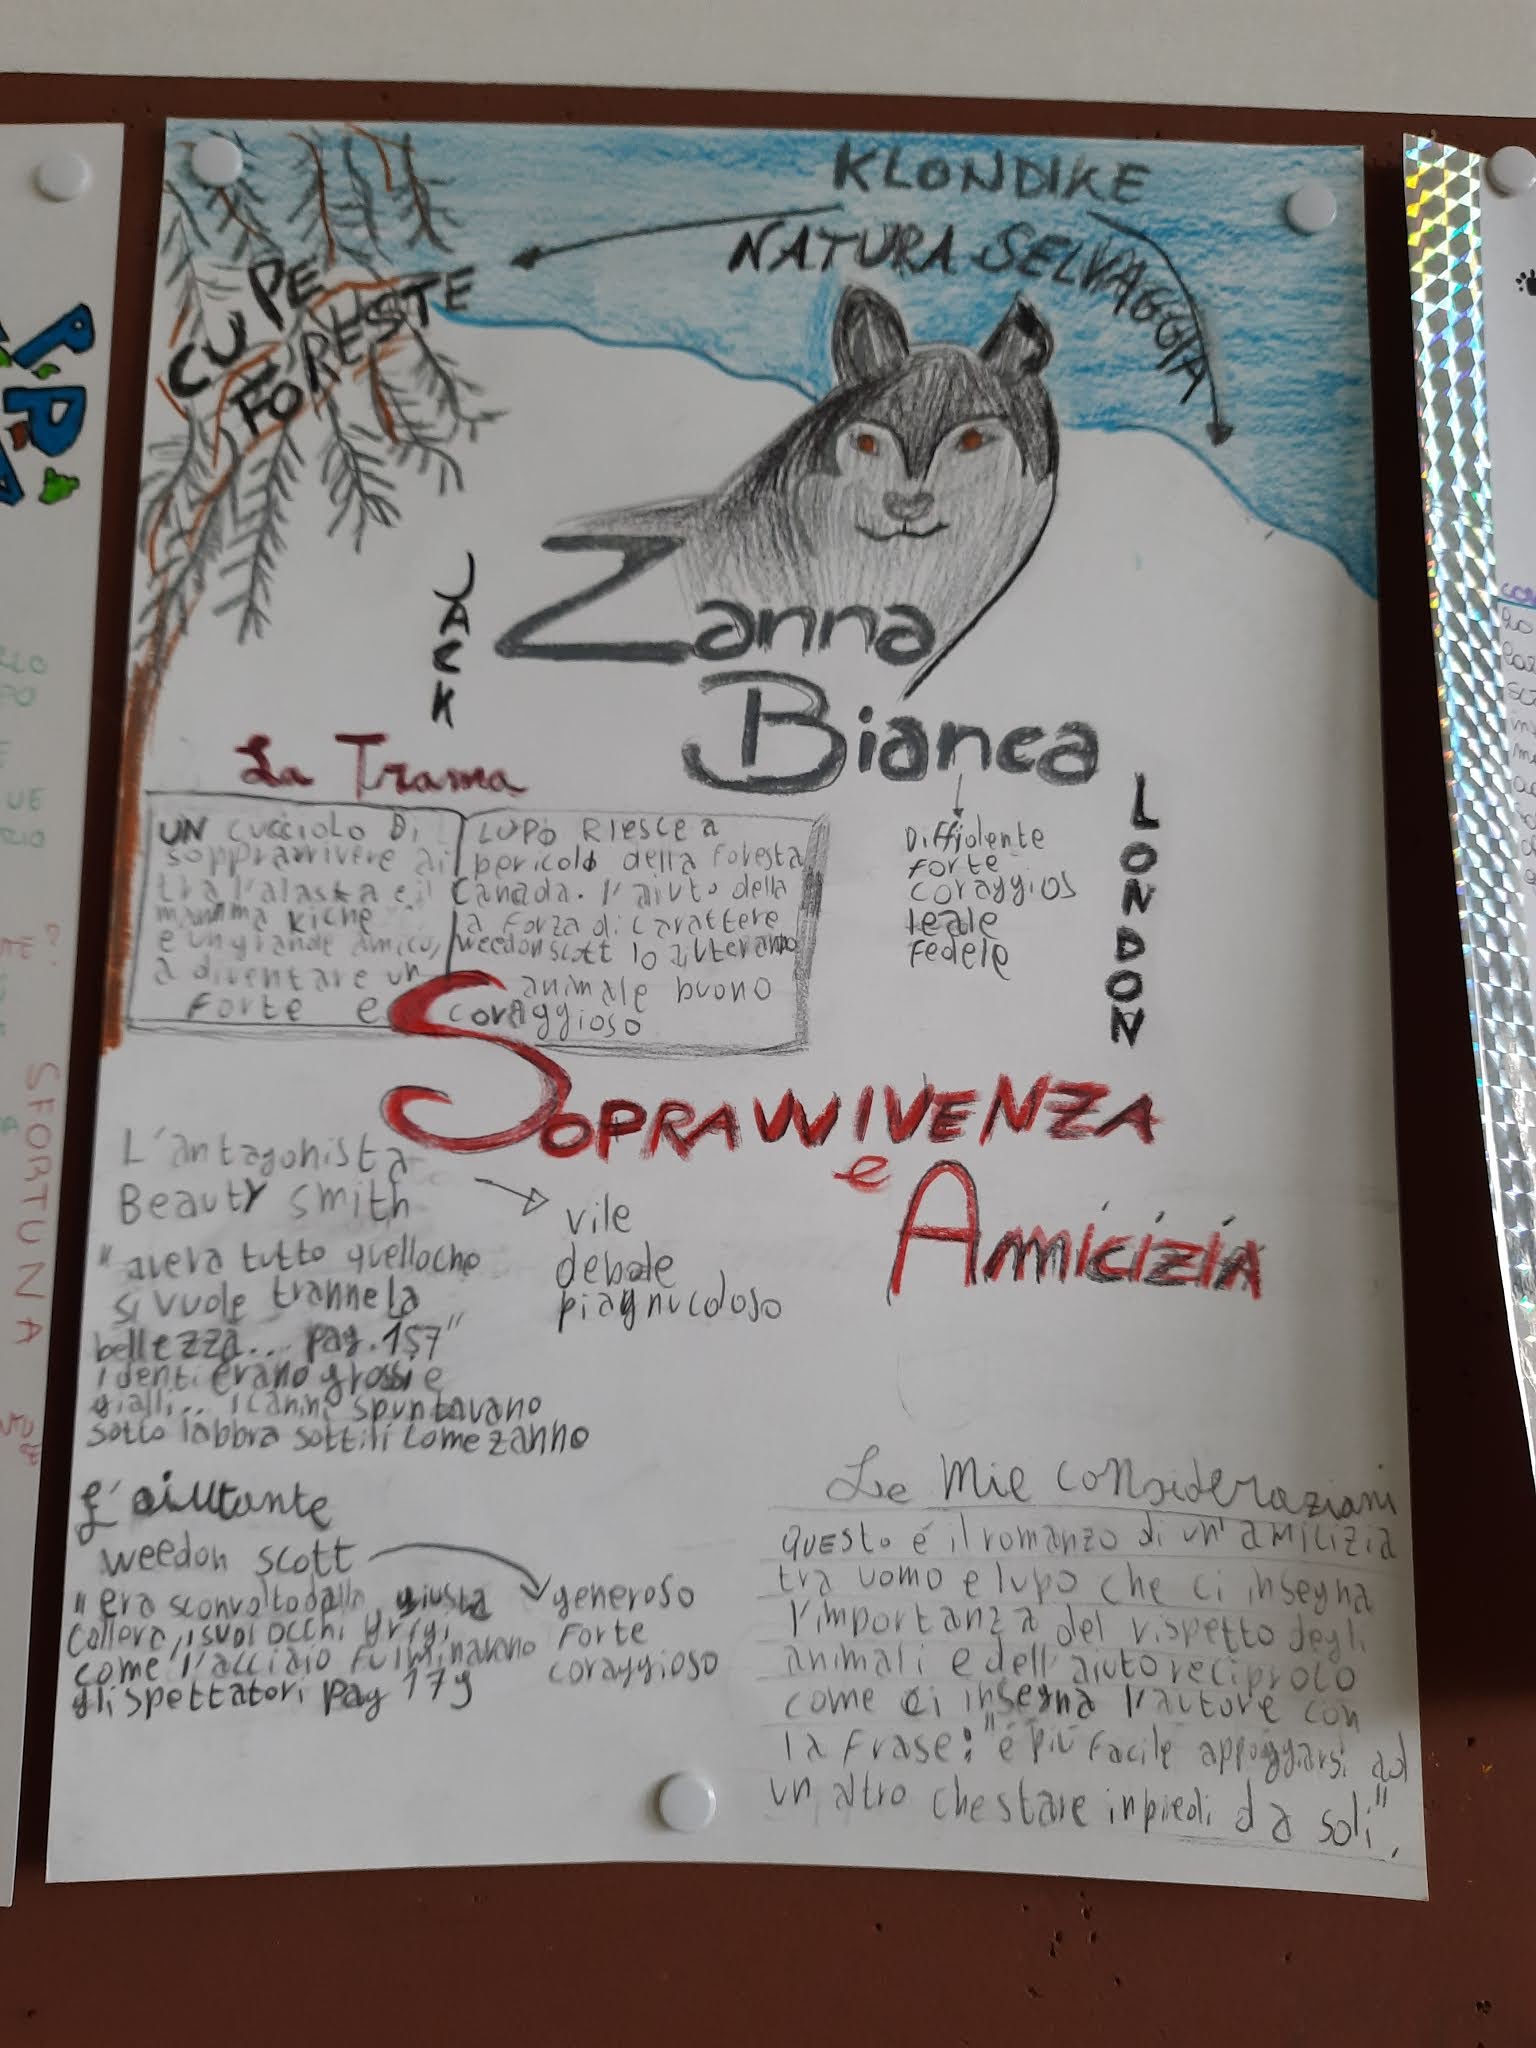 KLONDIKE
NATURA SELVAGGIA
CUPE
FORESTE
JACK
Zanna
Bianca
LONDON
La Trama
UN CUCCIOLO DI LUPO RIESCE A
soppravvivere ai pericoli della foresta
tra l'alaska e il Canada. l'aiuto della
mamma Kiche la forza di carattere
e un grande amico, weedon scott lo aiuteranno
a diventare un animale buono
forte e coraggioso
Diffidente
forte
coraggios
leale
fedele
SOPRAVVIVENZA
e
AMICIZIA
L'antagonista
Beauty smith
vile
debole
piagnucoloso
"aveva tutto quelloche
si vuole trannela
bellezza... pag. 157"
i denti erano grossi e
gialli... i canini spuntavano
sotto labbra sottili come zanno
L'aiutante
weedon scott
generoso
forte
coraggioso
"era sconvolto dalla giusta
collera, i suoi occhi grigi
come l'acciaio fulminavano
gli spettatori pag 179
Le Mie considerazioni
questo é il romanzo di un'amicizia
tra uomo e lupo che ci insegna
l'importanza del rispetto degli
animali e dell'aiuto reciproco
come ci insegna l'autore con
la frase: "é più facile appoggiarsi ad
un altro che stare in piedi da soli".
SFORTUNA